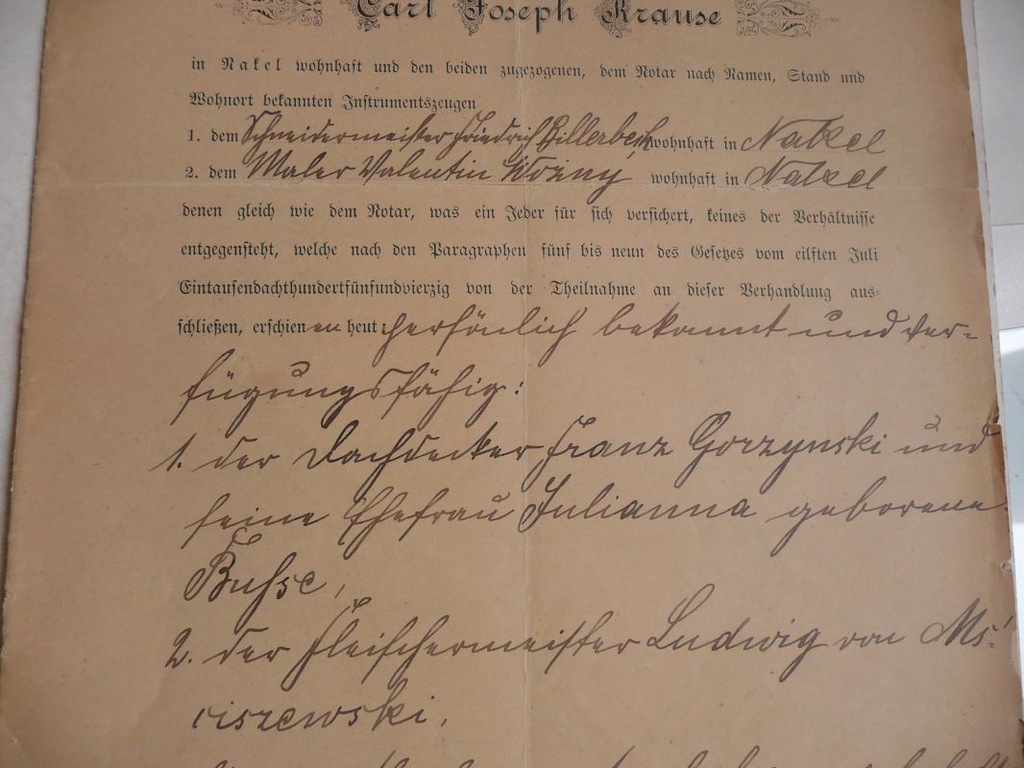 Carl Joseph Krause
in Nakel wohnhaft und den beiden zugezogenen, dem Notar nach Namen, Stand und
Wohnort bekannten Instrumentszeugen
1. dem Schneidermeister Friedrich Hillerbeck wohnhaft in Nakel
2. dem Maler Valentin Wozny wohnhaft in Nakel
denen gleich wie dem Notar, was ein Jeder für sich versichert, keines der Verhältnisse
entgegensteht, welche nach den Paragraphen fünf bis neun des Gesetzes vom eilften Juli
Eintausendachthundertfünfundvierzig von der Theilnahme an dieser Verhandlung aus-
schließen, erschienen heut persönlich bekannt und ver-
fügungsfähig:
1. der Dachdecker Franz Gorzynski und
seine Ehefrau Julianna geborene
Busse,
2. der Fleischermeister Ludwig von Mś-
ciszewski.